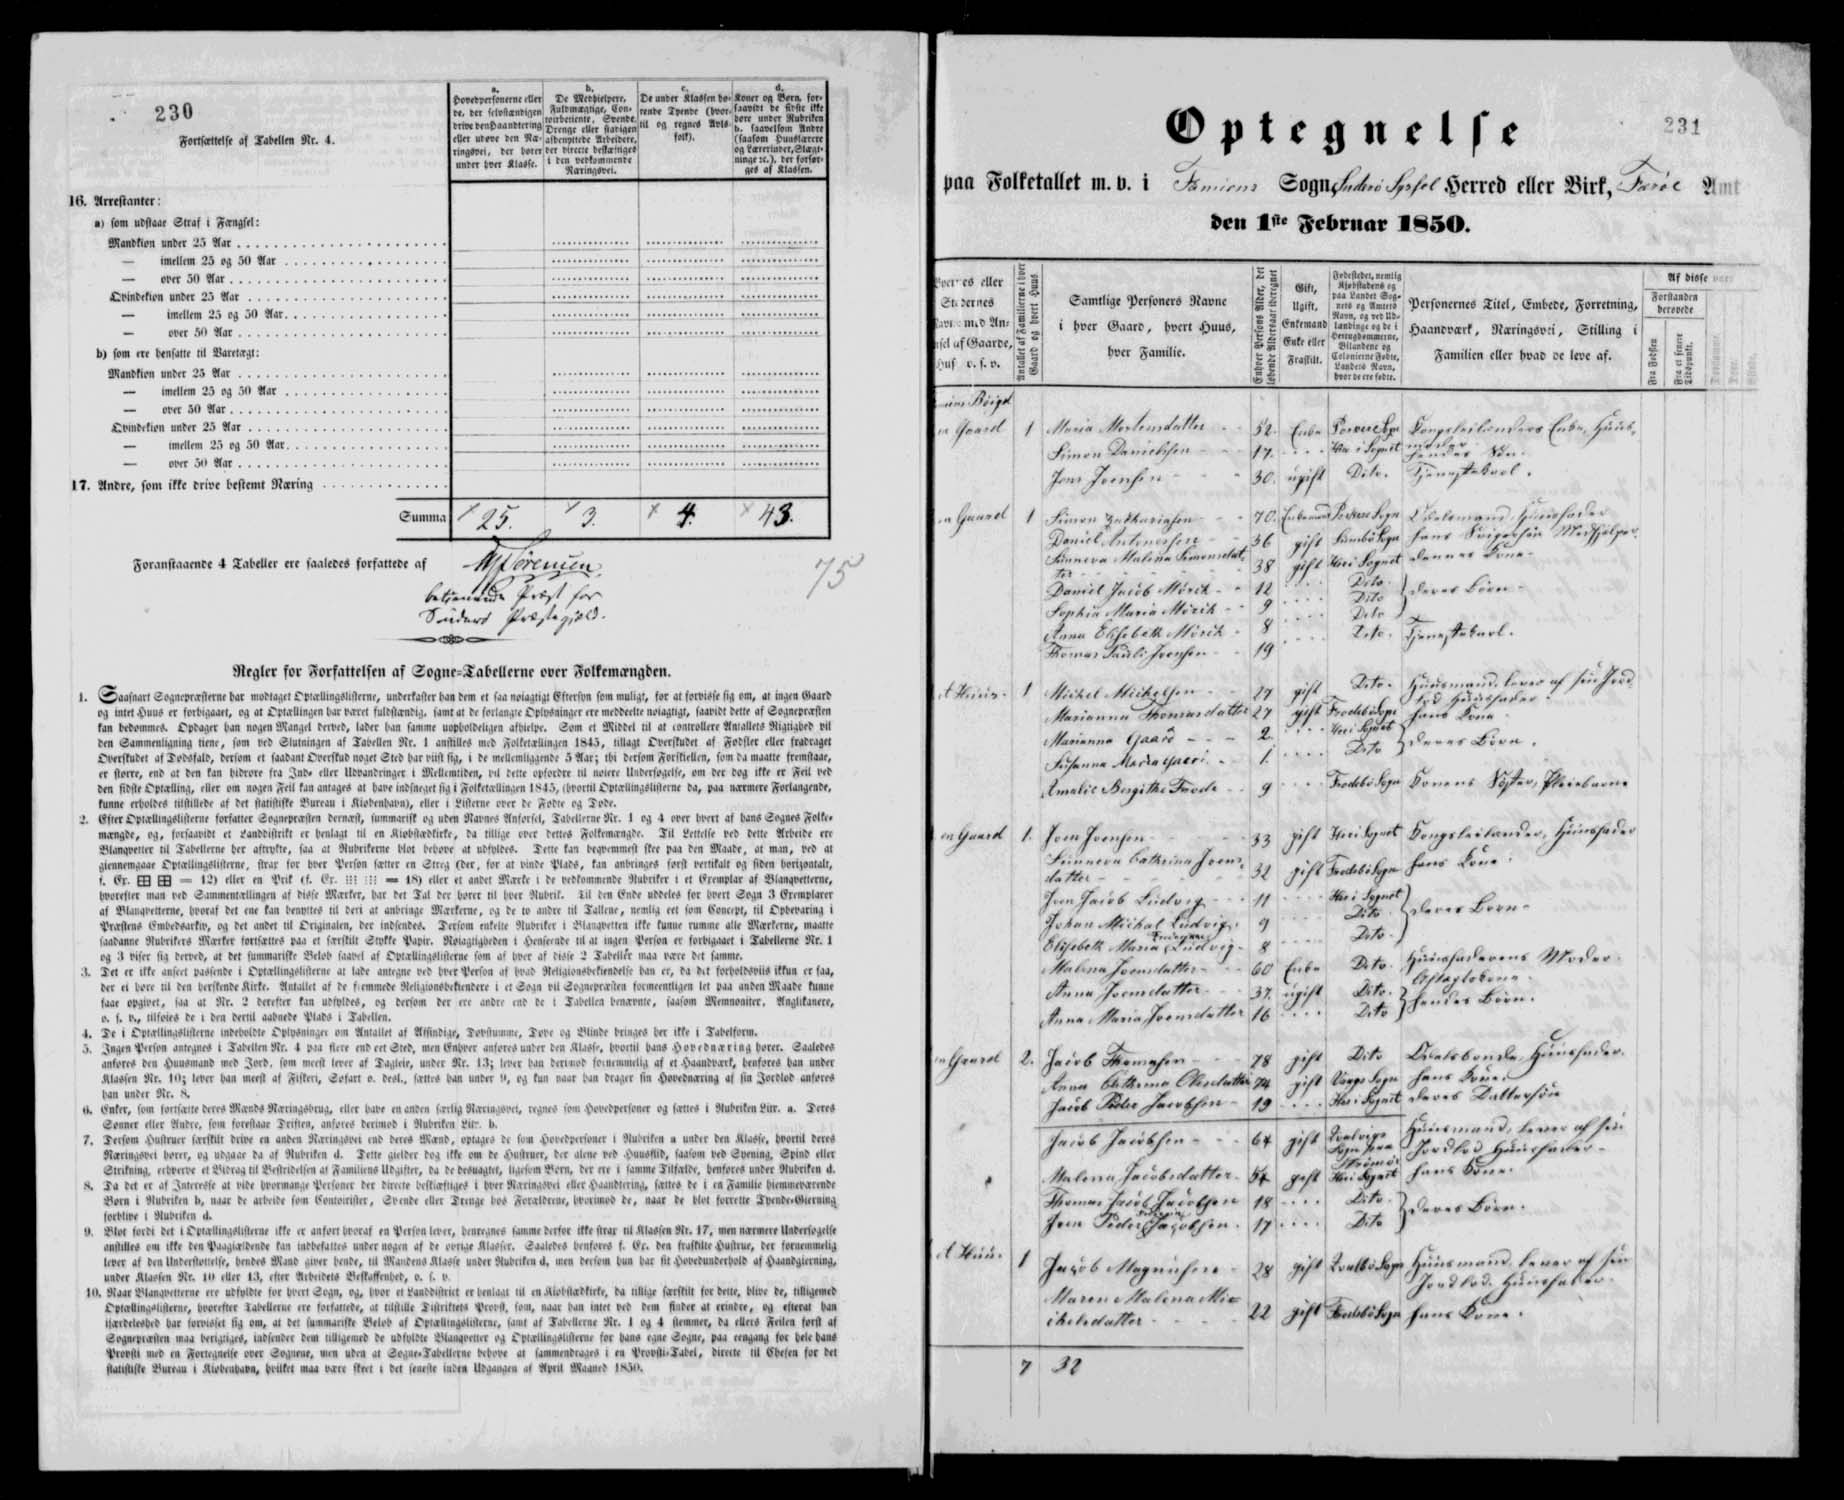 230
Fortsættelse af Tabellen Nr. 4.
a.
Hovedpersonerne eller
de, der selvstændigen
drive den Haandtering
eller udøve den Næ-
ringsvei, der hører
under hver Klasse.
b.
De Medhielpere,
Fuldmægtige, Con-
toirbetiente, Svende,
Drenge eller stadigen
afbenyttede Arbeidere,
der directe beskæftiges
i den vedkommende
Næringsvei.
c.
De under Klassen hø-
rende Tyende (hvor-
til og regnes Avls-
folk).
d.
Koner og Børn, for-
saavidt de sidste ikke
høre under Rubriken
b. saavelsom Andre
(saasom Huuslærere
og Lærerinder, Slægt-
ninge ꝛc.), der forsør-
ges af Klassen.
16. Arrestanter:
a) som udstaae Straf i Fængsel:
Mandkiøn under 25 Aar
— imellem 25 og 50 Aar
— over 50 Aar
Qvindekiøn under 25 Aar
— imellem 25 og 50 Aar
— over 50 Aar
b) som ere hensatte til Varetægt:
Mandkiøn under 25 Aar
— imellem 25 og 50 Aar
— over 50 Aar
Qvindekiøn under 25 Aar
— imellem 25 og 50 Aar
— over 50 Aar
17. Andre, som ikke drive bestemt Næring
Summa 25. 3. 4. 43.
Foranstaaende 4 Tabeller ere saaledes forfattede af Sørensen
betienende Præst for
Suderø Præstegield.
75
Regler for Forfattelsen af Sogne-Tabellerne over Folkemængden.
1. Saasnart Sognepræsterne har modtaget Optællingslisterne, underkaster han dem et saa nøiagtigt Eftersyn som muligt, for at forvisse sig om, at ingen Gaard
og intet Huus er forbigaaet, og at Optællingen har været fuldstændig, samt at de forlangte Oplysninger ere meddeelte nøiagtigt, saavidt dette af Sognepræsten
kan bedømmes. Opdager han nogen Mangel derved, lader han samme uopholdeligen afhielpe. Som et Middel til at controllere Antallets Rigtighed vil
den Sammenligning tiene, som ved Slutningen af Tabellen Nr. 1 anstilles med Folketællingen 1845, tillagt Overskudet af Fødsler eller fradraget
Overskudet af Dødsfald, dersom et saadant Overskud noget Sted har viist sig, i de mellemliggende 5 Aar; thi dersom Forskiellen, som da maatte fremstaae,
er større, end at den kan hidrøre fra Ind- eller Udvandringer i Mellemtiden, vil dette opfordre til nøiere Undersøgelse, om der dog ikke er Feil ved
den sidste Optælling, eller om nogen Feil kan antages at have indsneget sig i Folketællingen 1845, (hvortil Optællingslisterne da, paa nærmere Forlangende,
kunne erholdes tilstillede af det statistiske Bureau i Kiøbenhavn), eller i Listerne over de Fødte og Døde.
2. Efter Optællingslisterne forfatter Sognepræsten dernæst, summarisk og uden Navnes Anførsel, Tabellerne Nr. 1 og 4 over hvert af hans Sognes Folke-
mængde, og, forsaavidt et Landdistrikt er henlagt til en Kiøbstædkirke, da tillige over dettes Folkemængde. Til Lettelse ved dette Arbeide ere
Blanqvetter til Tabellerne her aftrykte, saa at Rubrikerne blot behøve at udfyldes. Dette kan beqvemmest skee paa den Maade, at man, ved at
giennemgaae Optællingslisterne, strax for hver Person sætter en Streg (der, for at vinde Plads, kan anbringes først vertikalt og siden horizontalt,
f. Ex. ⊞ ⊞ = 12) eller en Prik (f. Ex. ⁝⁝⁝ ⁝⁝⁝ = 18) eller et andet Mærke i de vedkommende Rubriker i et Exemplar af Blanqvetterne,
hvorefter man ved Sammentællingen af disse Mærker, har det Tal der hører til hver Rubrik. Til den Ende uddeles for hvert Sogn 3 Exemplarer
af Blanqvetterne, hvoraf det ene kan benyttes til deri at anbringe Mærkerne, og de to andre til Tallene, nemlig eet som Concept, til Opbevaring i
Præstens Embedsarkiv, og det andet til Originalen, der indsendes. Dersom enkelte Rubriker i Blanqvetten ikke kunne rumme alle Mærkerne, maatte
saadanne Rubrikers Mærker fortsættes paa et særskilt Stykke Papir. Nøiagtigheden i Henseende til at ingen Person er forbigaaet i Tabellerne Nr. 1
og 3 viser sig derved, at det summariske Beløb saavel af Optællingslisterne som af hver af disse 2 Tabeller maa være det samme.
3. Det er ikke anseet passende i Optællingslisterne at lade antegne ved hver Person af hvad Religionsbekiendelse han er, da det forholdsviis ikkun er faa,
der ei høre til den herskende Kirke. Antallet af de fremmede Religionsbekiendere i et Sogn vil Sognepræsten formeentligen let paa anden Maade kunne
faae opgivet, saa at Nr. 2 derefter kan udfyldes, og dersom der ere andre end de i Tabellen benævnte, saasom Memnoniter, Anglikanere,
o. s. v., tilføies de i den dertil aabnede Plads i Tabellen.
4. De i Optællingslisterne indeholdte Oplysninger om Antallet af Afsindige, Døvstumme, Døve og Blinde bringes her ikke i Tabelform.
5. Ingen Person antegnes i Tabellen Nr. 4 paa flere end eet Sted, men Enhver anføres under den Klasse, hvortil hans Hovednæring hører. Saaledes
anføres den Huusmand med Jord, som meest lever af Dagleie, under Nr. 13; lever han derimod fornemmelig af et Haandværk, henføres han under
Klassen Nr. 10; lever han meest af Fiskeri, Søfart o. desl., sættes han under 9, og kun naar han drager sin Hovednæring af sin Jordlod anføres
han under Nr. 8.
6. Enker, som fortsætte deres Mænds Næringsbrug, eller have en anden særlig Næringsvei, regnes som Hovedpersoner og sættes i Rubriken Litr. a. Deres
Sønner eller Andre, som forestaae Driften, anføres derimod i Rubriken Litr. b.
7. Dersom Hustruer særskilt drive en anden Næringsvei end deres Mænd, optages de som Hovedpersoner i Rubriken a under den Klasse, hvortil deres
Næringsvei hører, og udgaae da af Rubriken d. Dette gielder dog ikke om de Hustruer, der alene ved Huusflid, saasom ved Syening, Spind eller
Strikning, erhverve et Bidrag til Bestridelsen af Familiens Udgifter, da de desuagtet, ligesom Børn, der ere i samme Tilfælde, henføres under Rubriken d.
8. Da det er af Interesse at vide hvormange Personer der directe beskiæftiges i hver Næringsvei eller Haandtering, sættes de i en Familie hiemmeværende
Børn i Rubriken b, naar de arbeide som Contoirister, Svende eller Drenge hos Forældrene, hvorimod de, naar de blot forrette Tyende-Gierning
forblive i Rubriken d.
9. Blot fordi det i Optællingslisterne ikke er anført hvoraf en Person lever, henregnes samme derfor ikke strax til Klassen Nr. 17, men nærmere Undersøgelse
anstilles om ikke den Paagiældende kan indbefattes under nogen af de øvrige Klasser. Saaledes henføres f. Ex. den fraskilte Hustrue, der fornemmelig
lever af den Understøttelse, hendes Mand giver hende, til Mandens Klasse under Rubriken d, men dersom hun har sit Hovedunderhold af Haandgierning,
under Klassen Nr. 10 eller 13, efter Arbeidets Beskaffenhed, o. s. v.
10. Naar Blanqvetterne ere udfyldte for hvert Sogn, og, hvor et Landdistrict er henlagt til en Kiøbstædkirke, da tillige særskilt for dette, blive de, tilligemed
Optællingslisterne, hvorefter Tabellerne ere forfattede, at tilstille Districtets Provst, som, naar han intet ved dem finder at erindre, og efterat han
isærdeleshed har forvisset sig om, at det summariske Beløb af Optællingslisterne, samt af Tabellerne Nr. 1 og 4 stemmer, da ellers Feilen først af
Sognepræsten maa berigtiges, indsender dem tilligemed de udfyldte Blanqvetter og Optællingslisterne for hans egne Sogne, paa eengang for hele hans
Provsti med en Fortegnelse over Sognene, men uden at Sogne-Tabellerne behøve at sammendrages i en Provsti-Tabel, directe til Chefen for det
statistiske Bureau i Kiøbenhavn, hvilket maa være skeet i det seneste inden Udgangen af April Maaned 1850.
Optegnelse
231
paa Folketallet m. v. i Famiens Sogn, Suderø Syssel Herred eller Birk, Færøe Amt
den 1ste Februar 1850.
Byernes eller
Stedernes
Navne med An-
af Gaarde,
Huse o. s. v.
Antallet af Familierne i hver
Gaard og hvert Huus
Samtlige Personers Navne
i hver Gaard, hvert Huus,
hver Familie.
Enhver Persons Alder, det
løbende Aldersaar iberegnet
Gift,
Ugift,
Enkemand
Enke eller
Fraskilt.
Fødestedet, nemlig
Kjøbstadens og
paa Landet Sog-
nets og Amtets
Navn, og ved Ud-
lændinge og de i
Hertugdømmerne,
Bilandene og
Colonierne Fødte,
Landets Navn,
hvor de ere fødte.
Personernes Titel, Embede, Forretning,
Haandværk, Næringsvei, Stilling i
Familien eller hvad de leve af.
Af disse vare
Forstanden
berøvede
Fra Fødslen
Fra et senere
Tidspunkt.
Døvstumme.
Døve.
Blinde.
Bøigd
en Gaard 1 Maria Mortensdatter 52. Enke Porkere Sogn Kongsleilænders Enke, Huus-
moder
Simon Danielsen 17. Her i Sognet hendes Søn
Jens Joensen 30. ugift Dito. Tjenestekarl.
en Gaard 1 Simon Zachariasen 70. Enkemand Porkere Sogn Odelsmand, Huusfader
Daniel Antoniesen 36 gift Sumbø Sogn hans Svigersøn Medhjelper.
Sunneva Malena Simonsdat-
ter 38 gift Her i Sognet dennes Kone
Daniel Jacob Mörck 12 Dito
Sophia Maria Mörck 9 Dito deres Børn
Anna Elisebeth Mörck 8 Dito
Thomas Pauli Joensen 19 Dito. Tjenestekarl.
et Huus 1 Michel Michelsen 27 gift Dito. Huusmand, lever af sin Jord
lod Huusfader
Marianna Thomasdatter 27 gift Frodebø Sogn hans Kone
Marianna Gaard 2. Her i Sognet
Susanna Maria Gaard 1. Dito deres Børn.
Amalie Bergithe Frode 9 Frodebø Sogn Konens Søster, Pleiebarn
en Gaard 1. Joen Joensen 33 gift Her i Sognet Kongsleilænder, Huusfader
Sunneva Cathrina Joens-
datter 32 gift Frodebø Sogn hans Kone
Joen Jacob Ludvig 11 Her i Sognet
Johan Michal Ludvig 9 Dito deres Børn
Elisebeth Maria Ludvig 8 Dito
Malena Joensdatter 60 Enke Dito. Huusfaderens Moder.
Aftægtskone
Anna Joensdatter 37. ugift Dito.
Anna Maria Joensdatter 16 Dito hendes Børn.
en Gaard 2. Jacob Thomasen 78 gift Dito Odelsbonde Huusfader.
Anna Cathrina Olesdatter 74 gift Vaags Sogn hans Kone.
Jacob Peder Jacobsen 19 Her i Sognet deres Dattersøn
Jacob Jacobsen 64 gift Qvalvigs
Sogn paa
Strømø Huusmand, lever af sin
Jordlod Huusfader
Malena Jacobsdatter 54 gift Her i Sognet hans Kone.
Thomas Jacob Jacobsen 18 Dito
Joen Peder Jacobsen 17 Dito deres Børn.
et Huus 1 Jacob Magnusen 28 gift Qvalbø Sogn Huusmand, lever af sin
Jordlod, Huusfader
Maren Malena Mi-
chelsdatter 22 gift Frodebø Sogn hans Kone.
7 32